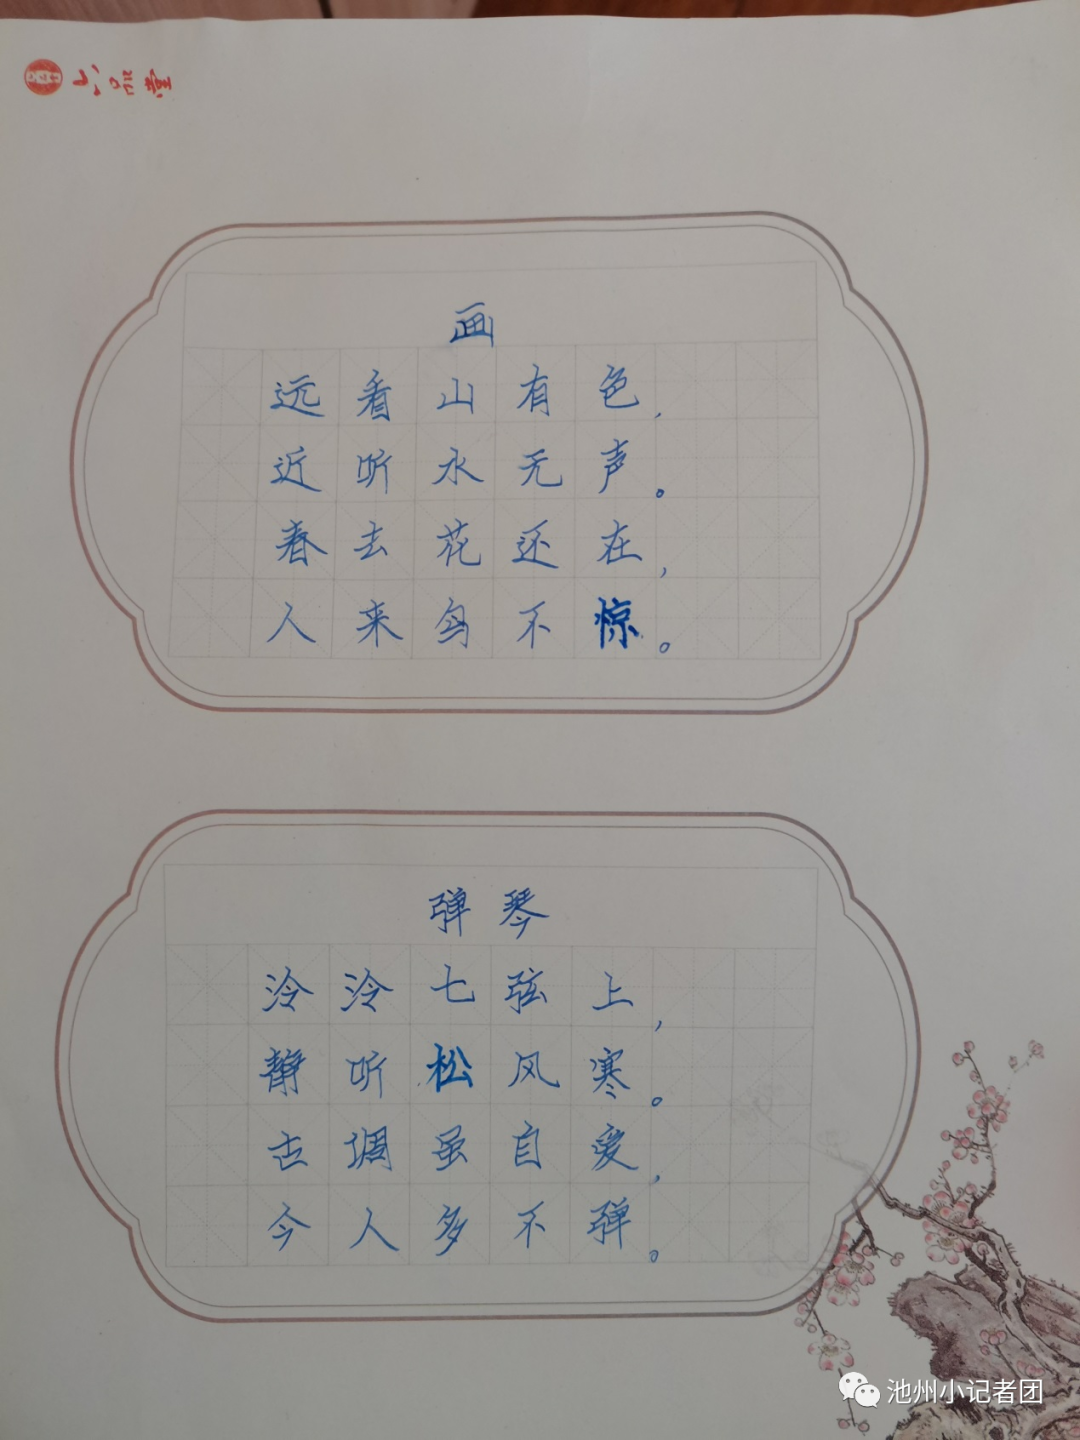 六品堂
画
远看山有色，
近听水无声。
春去花还在，
人来鸟不惊。
弹琴
泠泠七弦上，
静听松风寒。
古调虽自爱，
今人多不弹。
池州小记者团